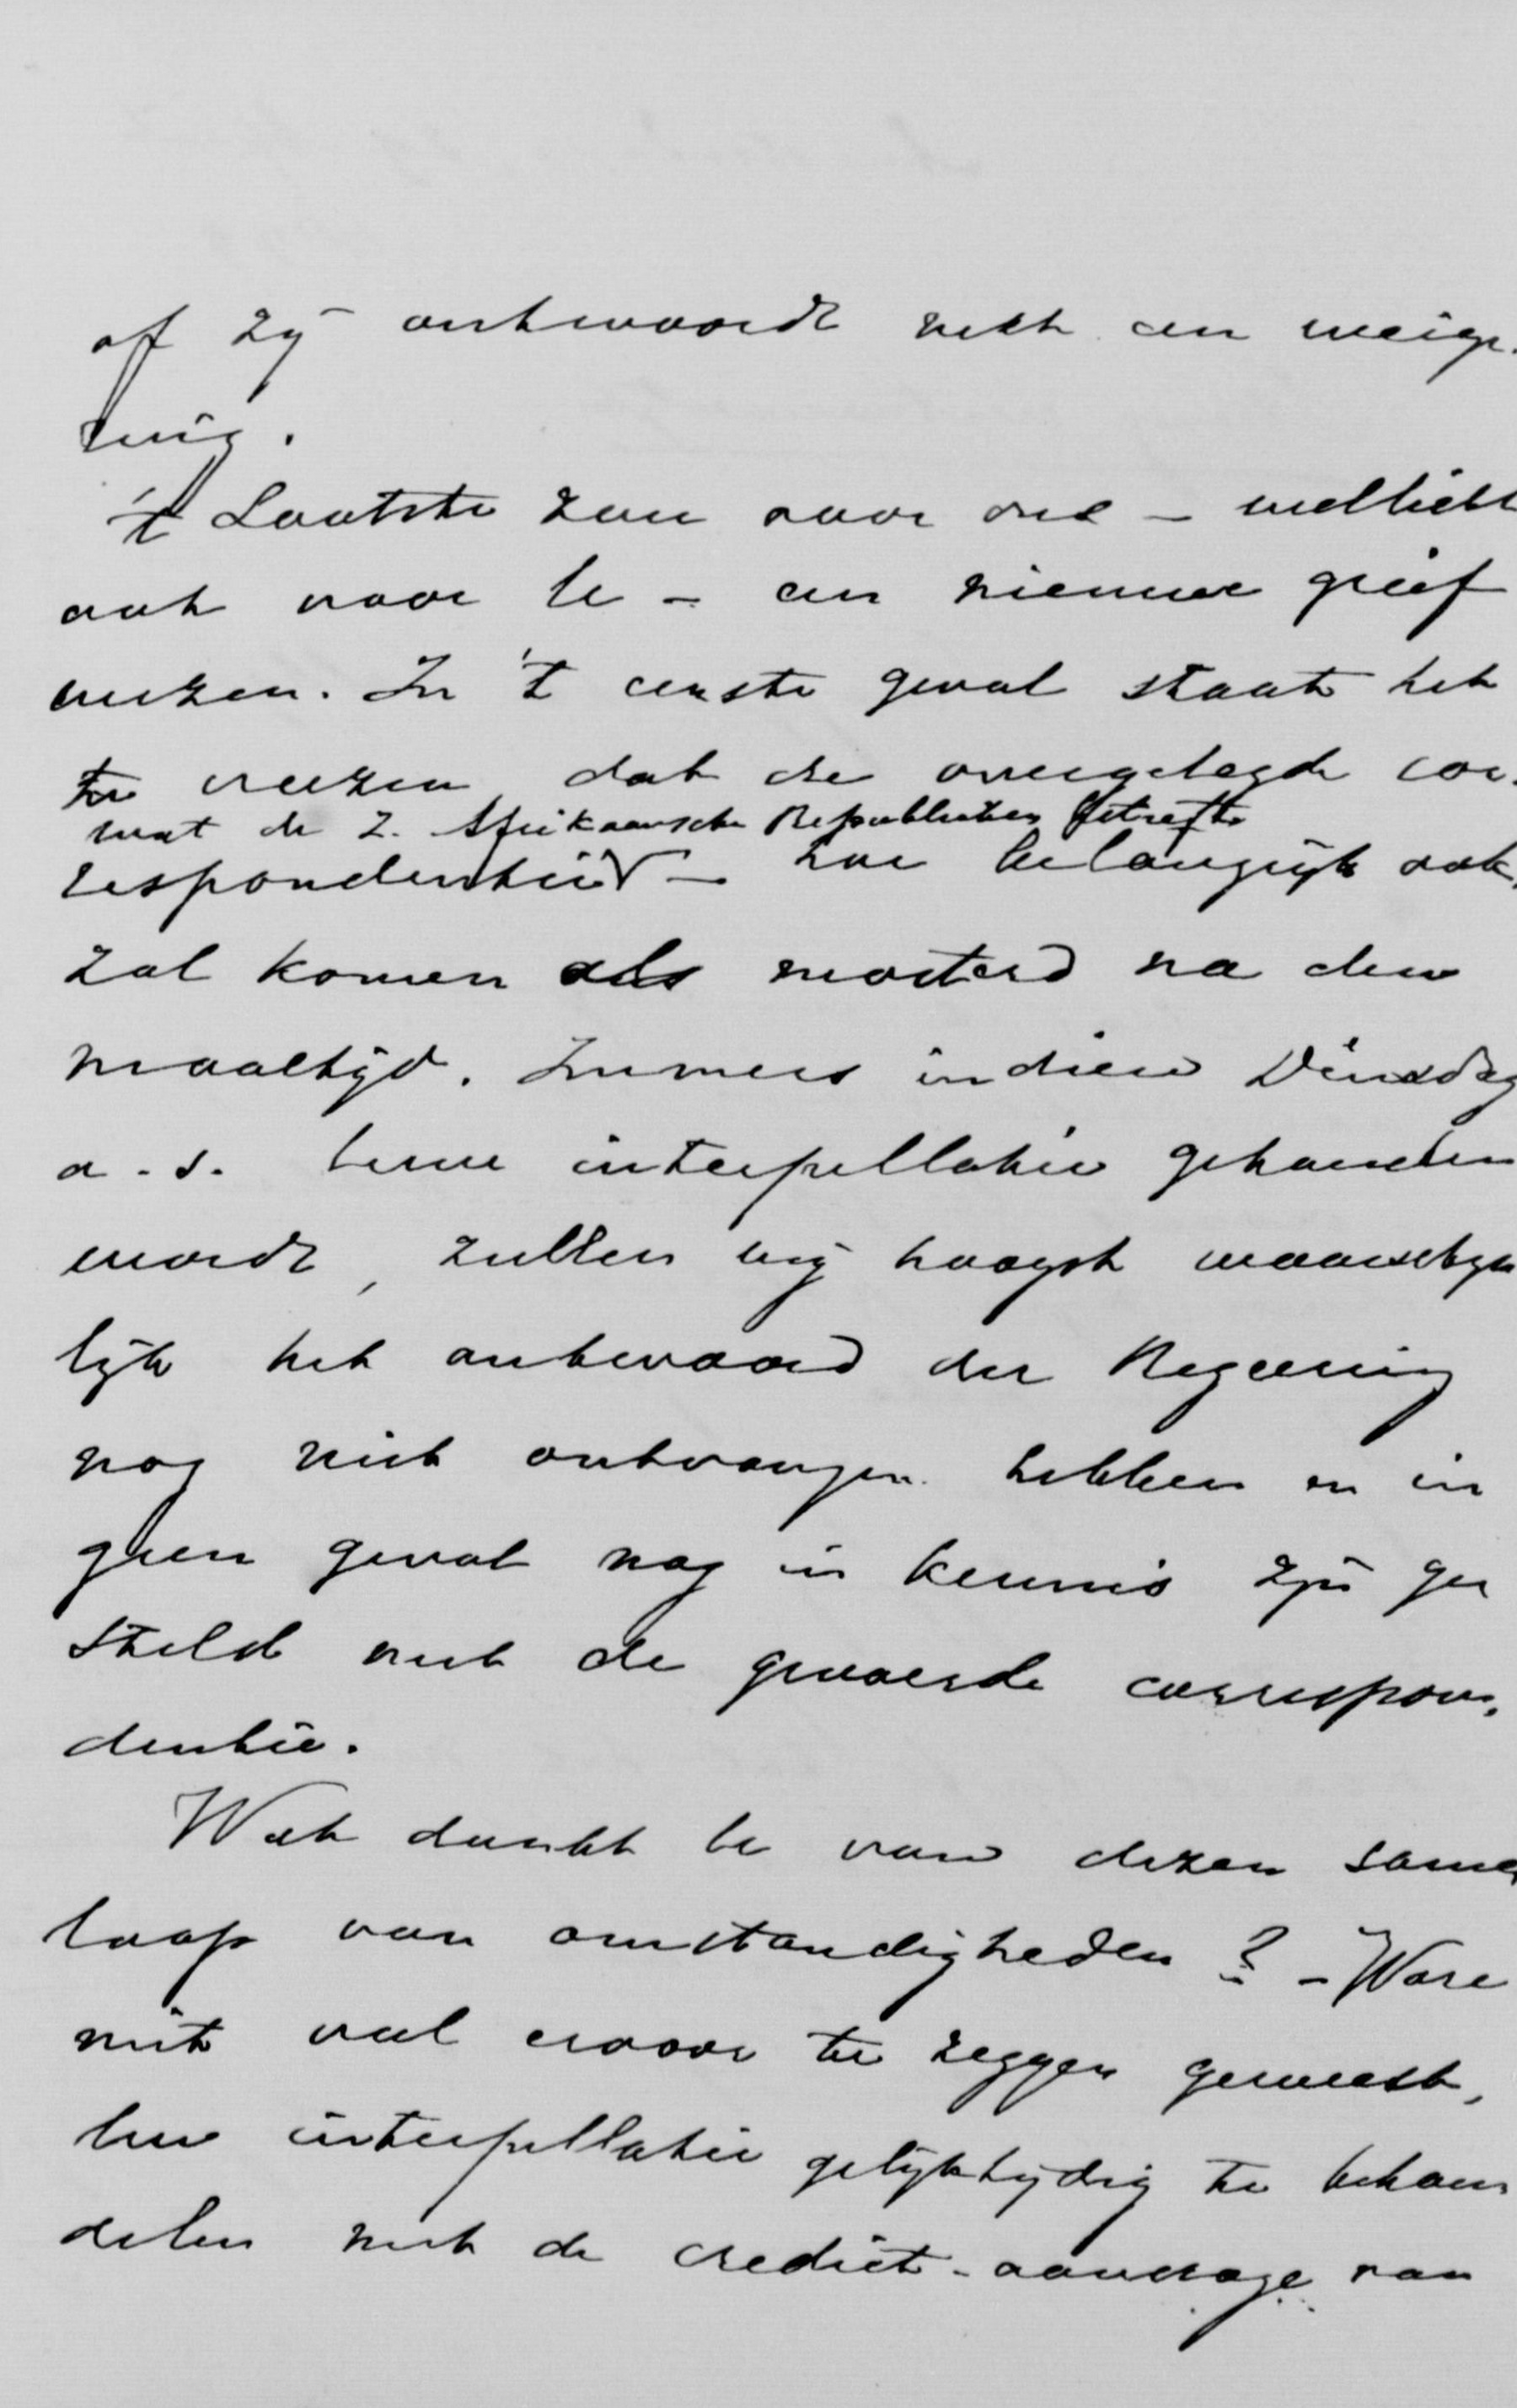 of zij antwoordt met een weige-
ring.
't Laatste zou voor ons – wellicht
ook voor U – een nieuwe grief
wezen. In 't eerste geval staat het
te vreezen dat de overgelegde cor-
wat de Z. Afrikaansche Republieken betreft
respondentie – hoe belangrijk ook,
zal komen als mosterd na den
maaltijd. Immers indien Dinsdag
a.s. Uwe interpellatie gehouden
wordt, zullen wij hoogst waarschijn
lijk het antwoord der Regeering
nog niet ontvangen hebben en in
geen geval nog in kennis zijn ge
steld met de gevoerde correspon-
dentie.
Wat dunkt U van dezen samen
loop van omstandigheden? – Ware
niet veel ervoor te zeggen geweest,
Uw interpellatie gelijktijdig te behan
delen met de crediet-aanvrage van